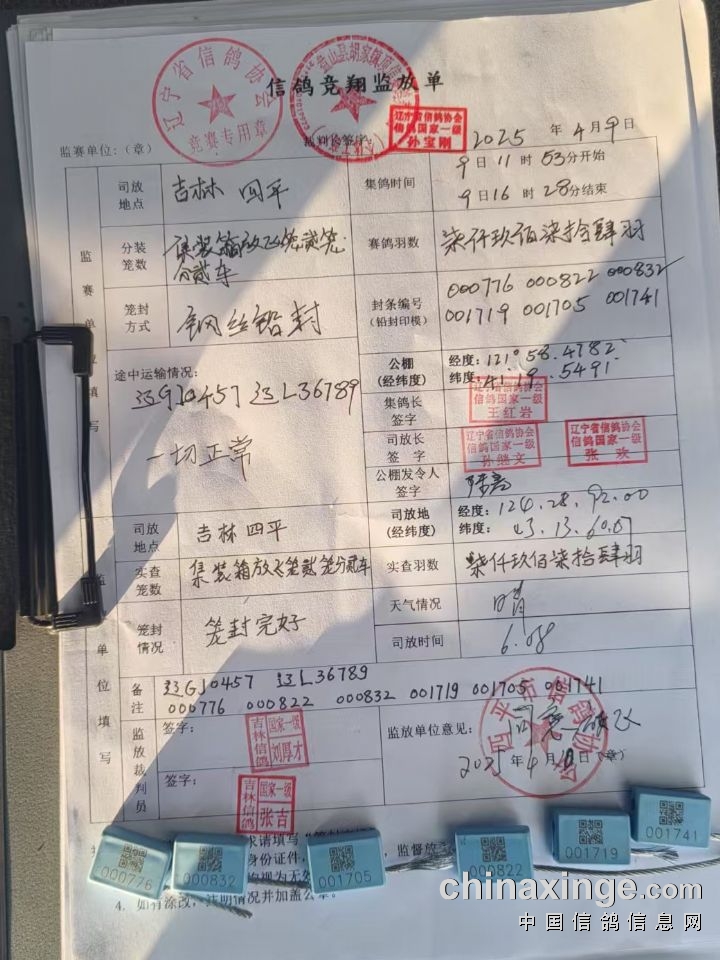 信鸽竞翔监放单
辽宁省信鸽协会
竞赛专用章
辽宁省信鸽协会
信鸽国家一级
孙宝刚
监赛单位：（章）
2025 年 4月9日
司放地点
吉林 四平
集鸽时间
9日11时53分开始
9日16时28分结束
分装笼数
集装箱放飞笼贰笼
分贰车
赛鸽羽数
柒仟玖佰柒拾肆羽
笼封方式
钢丝铅封
封条编号
(铅封印模)
000776 000822 000832
001719 001705 001741
途中运输情况：
辽GJ0457 辽L36789
一切正常
公棚
(经纬度)
经度：121°58.4782
纬度：41.19.5491
集鸽长签字
辽宁省信鸽协会
信鸽国家一级
王红岩
司放长签字
辽宁省信鸽协会
信鸽国家一级
孙继文
辽宁省信鸽协会
信鸽国家一级
张欢
公棚发令人签字
司放地点
吉林四平
司放地
(经纬度)
经度：124.28.92.00
纬度：43.13.60.07
实查笼数
集装箱放飞笼贰笼分贰车
实查羽数
柒仟玖佰柒拾肆羽
笼封情况
笼封完好
天气情况
晴
司放时间
6.08
监单位填写
备注
辽GJ0457 辽L36789
000776 000822 000832 001719 001705 001741
监放裁判员
签字：
吉林信鸽
国家一级
刘厚才
签字：
吉林信鸽
国家一级
张吉
监放单位意见：
四平市信鸽协会
同意放飞
2025年4月10日（章）
4. 如有涂改，注明情况并加盖公章。
000776
000832
001705
000822
001719
001741
chinaxinge.com
中国信鸽信息网